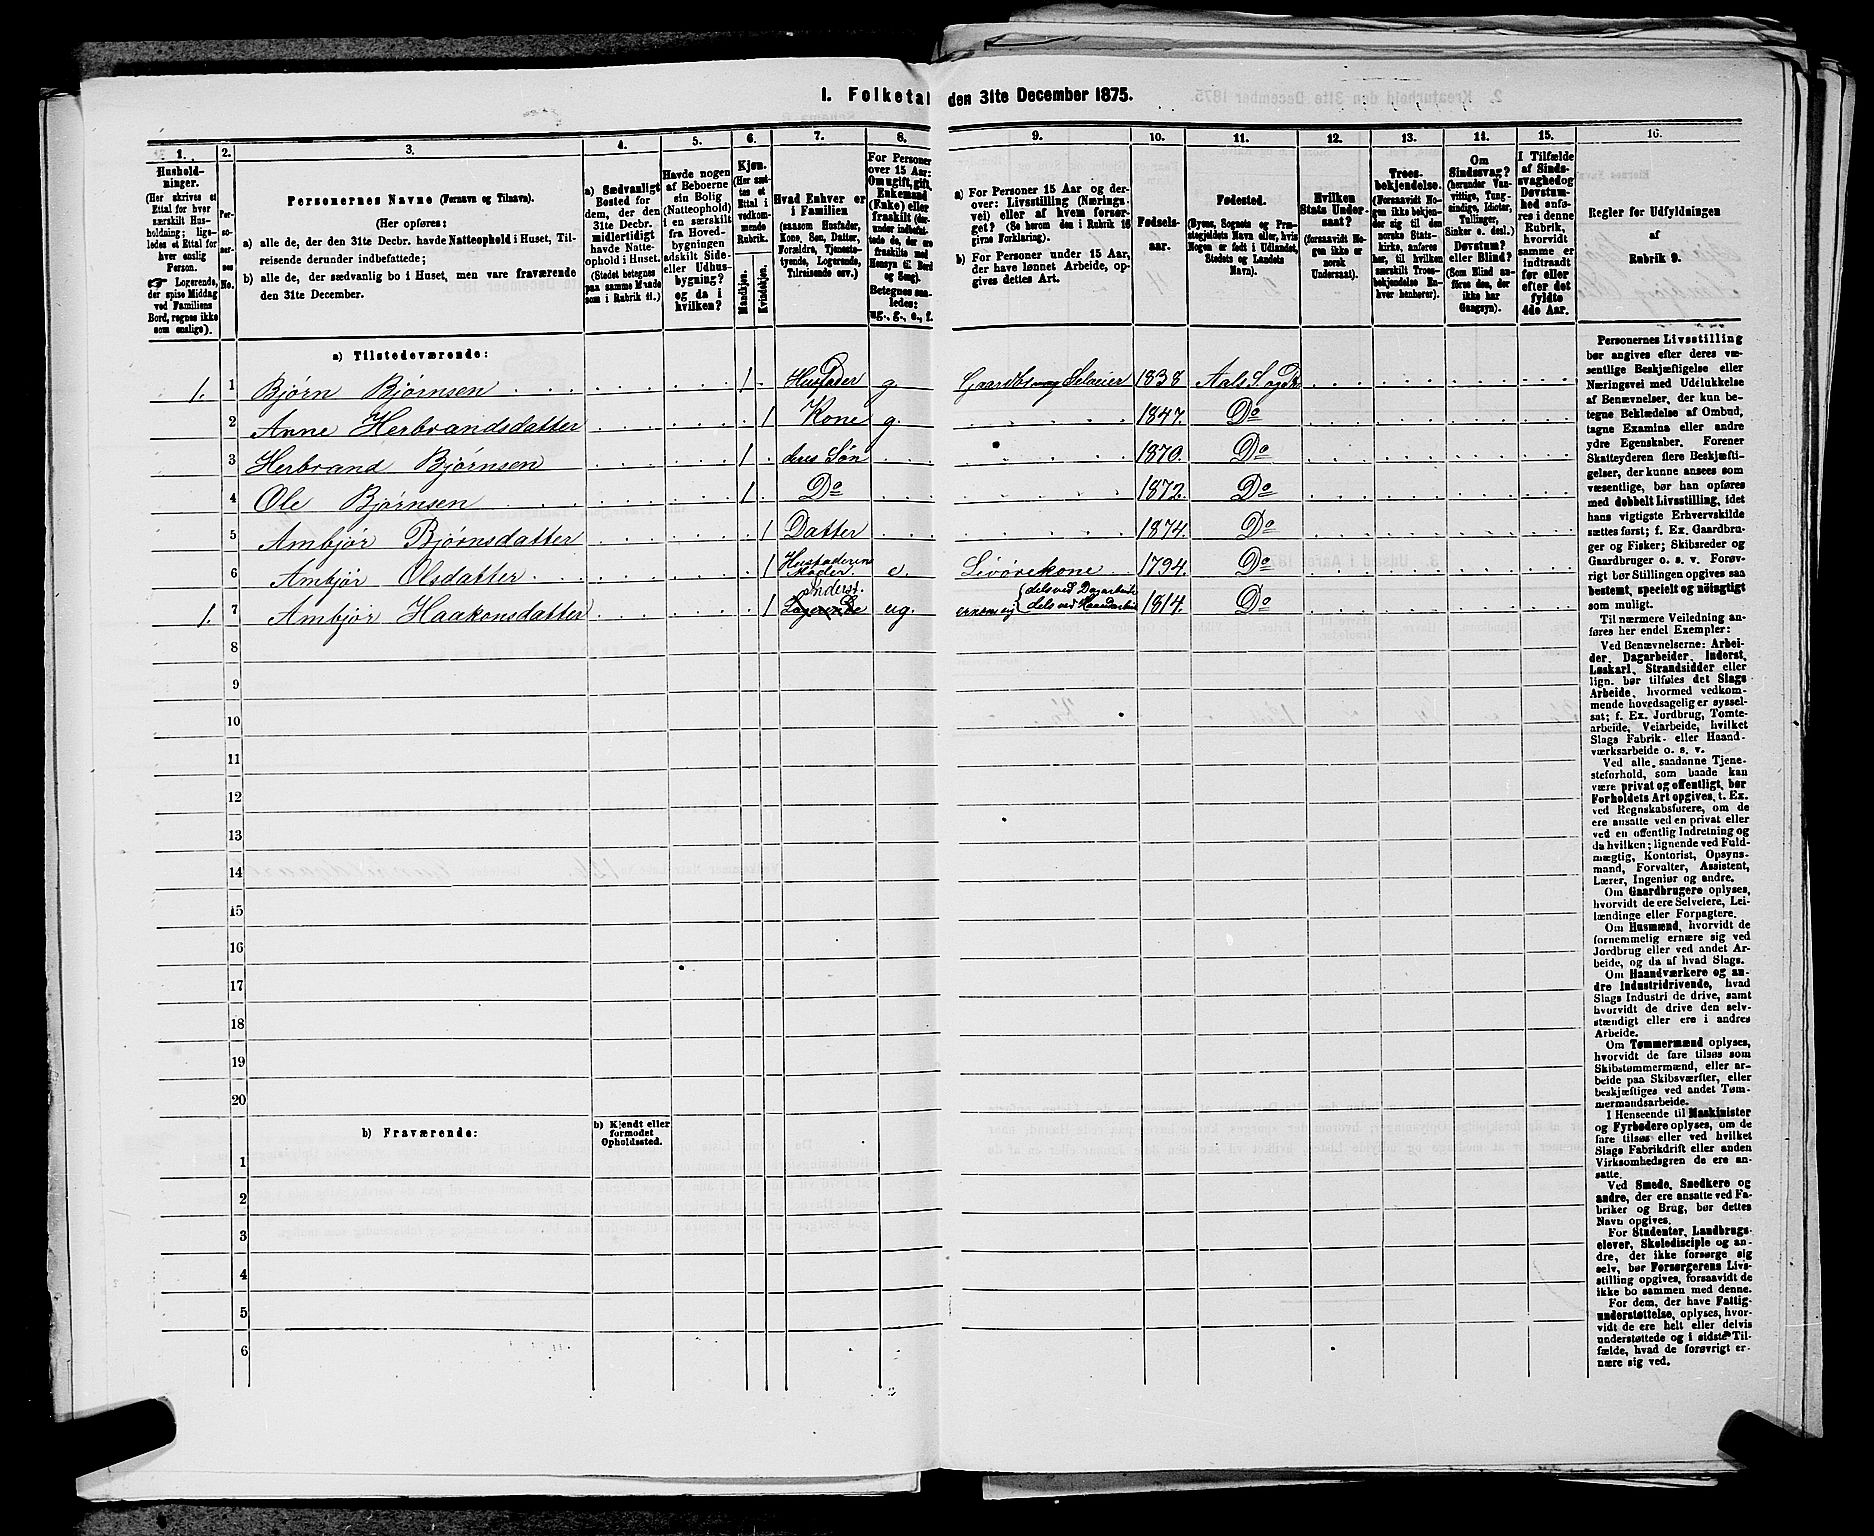 1. Folketal den 31te December 1875.
1.
Husholdninger.
(Her skrives et Ettal for hver særskilt Husholdning; ligeledes et Ettal for hver enslig Person.
☛ Logerende, der spise Middag ved Familiens Bord, regnes ikke som enslige).
2.
Personernes No.
3.
Personernes Navne (Fornavn og Tilnavn).
(Her opføres:
a) alle de, der den 31te Decbr. havde Natteophold i Huset, Tilreisende derunder indbefattede;
b) alle de, der sædvanlig bo i Huset, men vare fraværende den 31te December.
4.
a) Sædvanligt Bosted for dem, der den 31te Decbr. midlertidigt havde Natteophold i Huset.
(Stedet betegnes paa samme Maade som i Rubrik 11.)
5.
Havde nogen af Beboerne sin Bolig (Natteophold) i en særskilt fra Hovedbygningen adskilt Side- eller Udhusbygning? og da i hvilken?
6.
Kjøn.
(Her sættes et Ettal i vedkommende Rubrik.
Mandkjøn.
Kvindekjøn.
7.
Hvad Enhver er i Familien
(saasom Husfader, Kone, Søn, Datter, Forældre, Tjenestetyende, Logerende, Tilreisende osv.)
8.
For Personer over 15 Aar: Om ugift, gift, Enkemand (Enke) eller fraskilt
Betegnes saaledes:
ug., g., e., f.
9.
a) For Personer 15 Aar og derover: Livsstilling (Næringsvei) eller af hvem forsørget? (Se herom den i Rubrik 16 givne Forklaring).
b) For Personer under 15 Aar, der have lønnet Arbeide, opgives dettes Art.
10.
Fødselsaar.
11.
Fødested.
(Byens, Sognets og Præstegjeldets Navn eller, hvis Nogen er født i Udlandet, Stedets og Landets Navn).
12.
Hvilken Stats Undersaat?
(forsaavidt Nogen ikke er norsk Undersaat).
13.
Troesbekjendelse.
(Forsaavidt Nogen ikke bekjender sig til den norske Statskirke, anføres her, til hvilken særskilt Troesbekjendelse Enhver henhører).
14.
Om Sindssvag?
(herunder Vanvittige, Tungsindige, Idioter, Tullinger, Sinker o. desl.)
Døvstum? eller Blind?
(Som Blind anføres den, der ikke har Gangsyn).
15.
I Tilfælde af Sindssvaghed og Døvstumhed anføres i denne Rubrik, hvorvidt samme er indtraadt før eller efter det fyldte 4de Aar.
16.
Regler for Udfyldningen
af
Rubrik 9.
a) Tilstedeværende:
1. 1 Bjørn Bjørnsen 1 Husfader g. Gaardbr. og Selveier 1838 Aals S. og
2 Anne Herbrandsdatter 1 Kone g. 1847. Do
3 Herbrand Bjørnsen 1 deres Søn 1870. Do
4 Ole Bjørnsen 1 Do 1872. Do
5 Ambjør Bjørnsdatter 1 Datter 1874. Do
6 Ambjør Olsdatter 1 Husfaderens Moder e. Livørekone 1794. Do
inderst.
1. 7 Ambjør Haakonsdatter 1 Logerende ug. dels ved Dagarbeide dels ved Haandarbeid 1814. Do
8
9
10
11
12
13
14
15
16
17
18
19
20
b) Fraværende:
b) Kjendt eller formodet Opholdssted.
1
2
3
4
5
6
Personernes Livsstilling
bør angives efter deres væ-
sentlige Beskjæftigelse eller
Næringsvei med Udelukkelse
af Benævnelser, der kun be-
tegne Beklædelse af Ombud,
tagne Examina eller andre
ydre Egenskaber. Forener
Skatteyderen flere Beskjæfti-
gelser, der kunne ansees som
væsentlige, bør han opføres
med dobbelt Livsstilling, idet
hans vigtigste Erhvervskilde
sættes først; f. Ex. Gaardbru-
ger og Fisker; Skibsreder og
Gaardbruger o. s. v. Forøv-
rigt bør Stillingen opgives saa
bestemt, specielt og nøiagtigt
som muligt.
Til nærmere Veiledning an-
føres her endel Exempler:
Ved Benævnelserne: Arbei-
der, Dagarbeider, Inderst,
Løskarl, Strandsidder eller
lign. bør tilføies det Slags
Arbeide, hvormed vedkom-
mende hovedsagelig er syssel-
sat; f. Ex. Jordbrug, Tomte-
arbeide, Veiarbeide, hvilket
Slags Fabrik- eller Haand-
værksarbeide o. s. v.
Ved alle saadanne Tjene-
steforhold, som baade kan
være privat og offentligt, bør
Forholdets Art opgives, t. Ex.
ved Regnskabsførere, om de
ere ansatte ved en privat eller
ved en offentlig Indretning og
da hvilken; lignende ved Fuld-
mægtig, Kontorist, Opsyns-
mand, Forvalter, Assistent,
Lærer, Ingeniør og andre.
Om Gaardbrugere oplyses,
hvorvidt de ere Selveiere, Lei-
lændinge eller Forpagtere.
Om Husmænd, hvorvidt de
fornemmelig ernære sig ved
Jordbrug eller ved andet Ar-
beide, og da af hvad Slags.
Om Haandværkere og an-
dre Industridrivende, hvad
Slags Industri de drive, samt
hvorvidt de drive den selv-
stændigt eller ere i andres
Arbeide.
Om Tømmermænd oplyses,
hvorvidt de fare tilsøs som
Skibstømmermænd, eller ar-
beide paa Skibsværfter, eller
beskjæftiges ved andet Tøm-
mermandsarbeide.
I Henseende til Maskinister
og Fyrbødere oplyses, om de
fare tilsøs eller ved hvilket
Slags Fabrikdrift eller anden
Virksomhedsgren de ere an-
satte.
Ved Smede, Snedkere og
andre, der ere ansatte ved Fa-
briker og Brug, bør dettes
Navn opgives.
For Studenter, Landbrugs-
elever, Skoledisciple og an-
dre, der ikke forsørge sig
selv, bør Forsørgerens Livs-
stilling opgives, forsaavidt de
ikke bo sammen med denne.
For dem, der have Fattig-
understøttelse, oplyses, hvor-
vidt de ere helt eller delvis
understøttede og i sidste Til-
fælde, hvad de forøvrigt er-
nære sig ved.